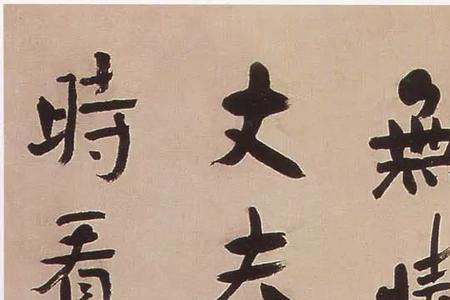 無情
丈夫
時看